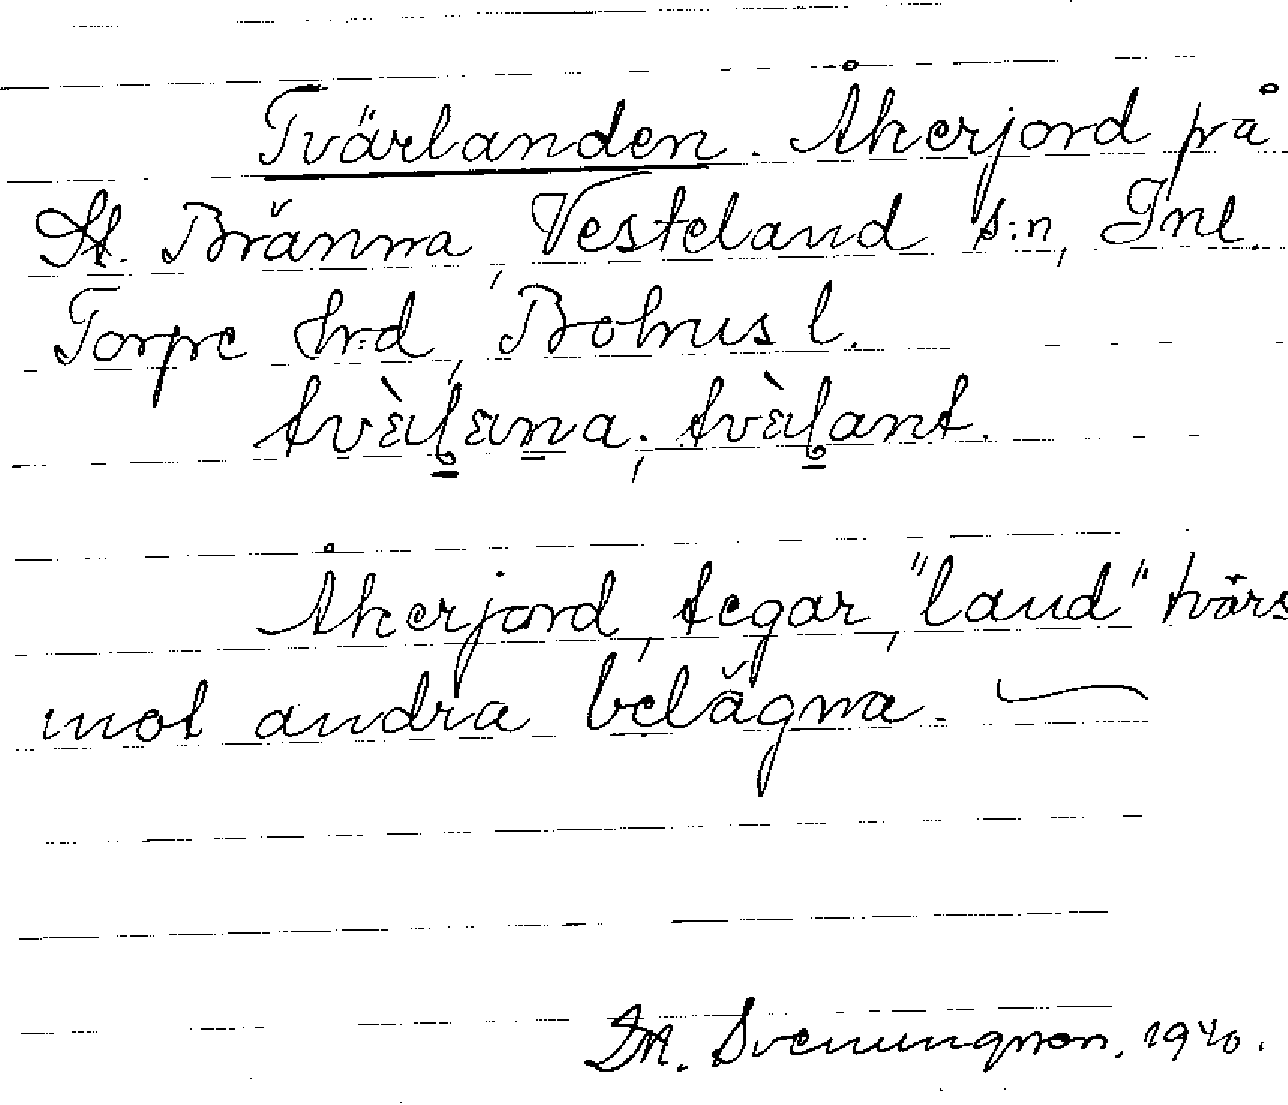 Tvärlanden. Åkerjord på
St. Bränna, Vesteland s:n, Inl.
Torpe hrd, Bohus l.
tvàḷana; tvàḷant.
Åkerjord, tegar, "land" tvärs
mot andra belägna.
M. Svenungson. 1940.